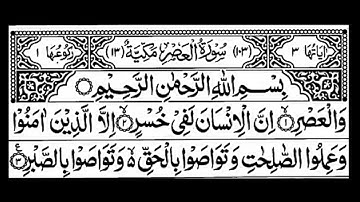 اٰيَاتُهَا ٣ (١٠٣) سُوْرَةُ الْعَصْرِ مَكِّيَّةٌ (١٣) رُكُوْعُهَا ١
بِسْمِ اللّٰهِ الرَّحْمٰنِ الرَّحِيْمِ
وَالْعَصْرِ ۙ﴿١﴾ اِنَّ الْاِنْسَانَ لَفِیْ خُسْرٍ ۙ﴿٢﴾ اِلَّا الَّذِیْنَ اٰمَنُوْا
وَعَمِلُوا الصّٰلِحٰتِ وَتَوَاصَوْا بِالْحَقِّ ۙ۬ وَتَوَاصَوْا بِالصَّبْرِ ﴿٣﴾ ع